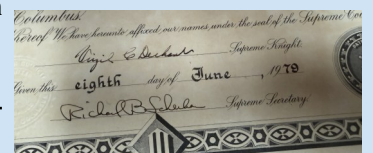 Columbus.
hereof We have hereunto affixed our names under the seal of the Supreme
Virgil C. Dechant Supreme Knight.
Given this eighth day of June, 1979
Supreme Secretary.